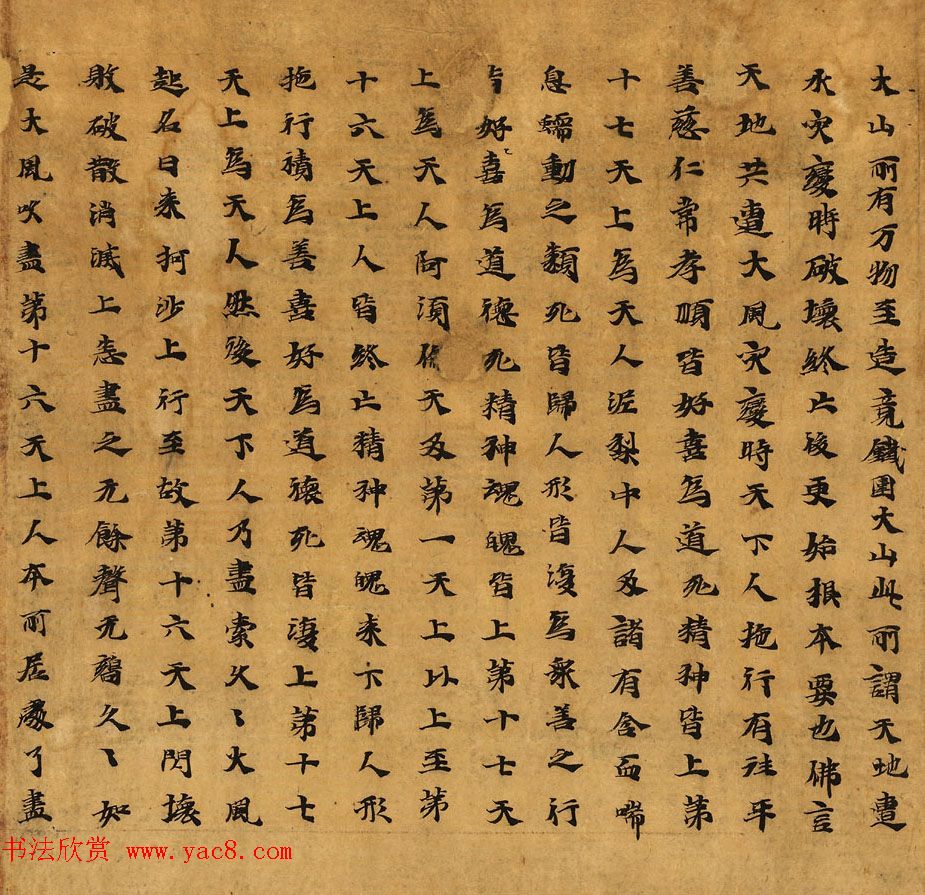 大山所有万物至造竟鐵圍大山此所謂天地遭
水灾變時破壞終亡後更始根本要也佛言
天地共遭大風灾變時天下人施行有法平
善慈仁常孝順皆好憙為道死精神皆上第
十七天上為天人泥梨中人及諸有含血喘
息蠕動之類死皆歸人形皆復為衆善之行
皆好喜為道德死精神魂魄皆上第十七天
上為天人阿須倫天及第一天上以上至第
十六天上人皆終亡精神魂魄来下歸人形
施行積為善憙好為道德死皆復上第十七
天上為天人然後天下人乃盡索久〻火風
起名曰来柯沙上行至故第十六天上閉壞
敗破散消滅上悉盡之无餘聲无 久〻如
是大風吹盡第十六天上人本所居處了盡
书法欣赏 www.yac8.com